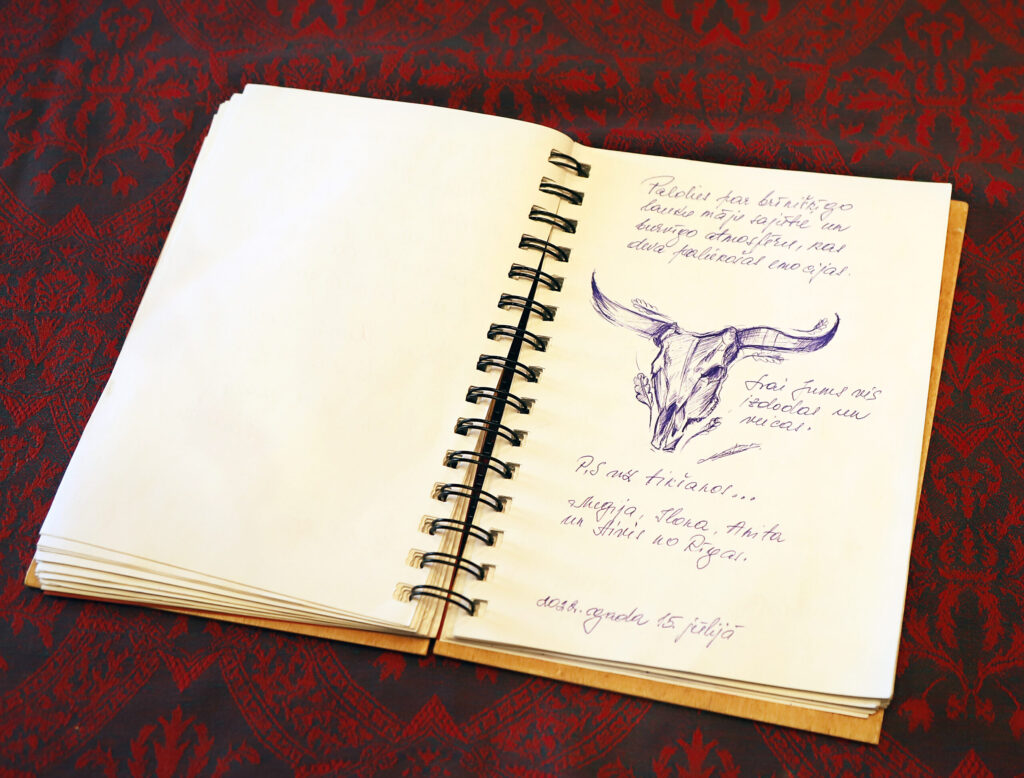 Paldies par brīnišķīgo
lauku māju sajūtu un
burvīgo atmosfēru, kas
deva paliekošas emocijas.
Lai Jums viss
izdodas un
veicas.
P.S uz tikšanos...
Megija, Ilona, Anita
un Aivis no Rīgas.
gada 15. jūlijā